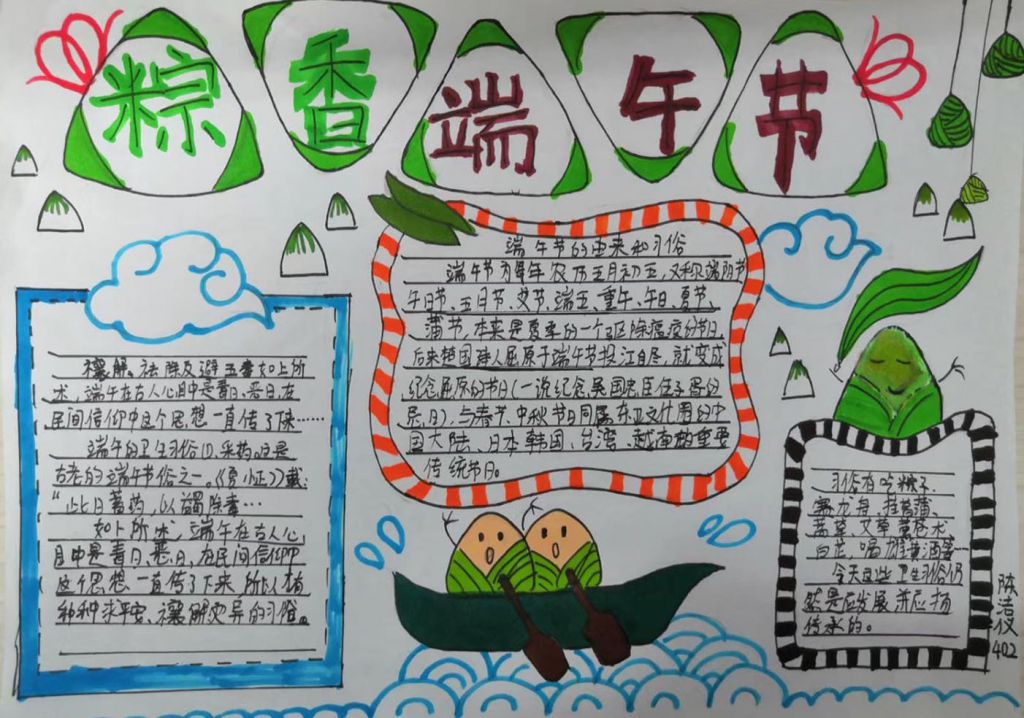 粽香端午节
端午节的由来和习俗
端午节为每年农历五月初五,又称端阳节
午日节、五月节、艾节、端五、重午、午日、夏节、
蒲节,本来是夏季的一个驱除瘟疫的节日,
后来楚国诗人屈原于端午节投江自尽,就变成
纪念屈原的节日(一说纪念吴国忠臣伍子胥的
忌日)、与春节、中秋节日同属东亚文什周的中
国大陆、日本韩国、台湾、越南的重要
传统节日。
禳解、祛除及避五毒如上所
述,端午在古人心目中是毒日、恶日,在
民间信仰中这个思想一直传了下来……
端午的卫生习俗(1).采药。这是
古老的端午节俗之一。《夏小正》载:
“此日蓄药,以蠲除毒…
如上所述,端午在古人心
目中是毒日、恶日,在民间信仰中
这个思想一直传了下来,所以才有
种种求平安、禳解灾异的习俗。
习俗有吃粽子,
赛龙舟,挂菖蒲、
蒿草、艾草薰苍术
白芷,喝雄黄酒等…
今天这些卫生习俗仍
然是应发展并应扬
传承的。
陈洁仪
402